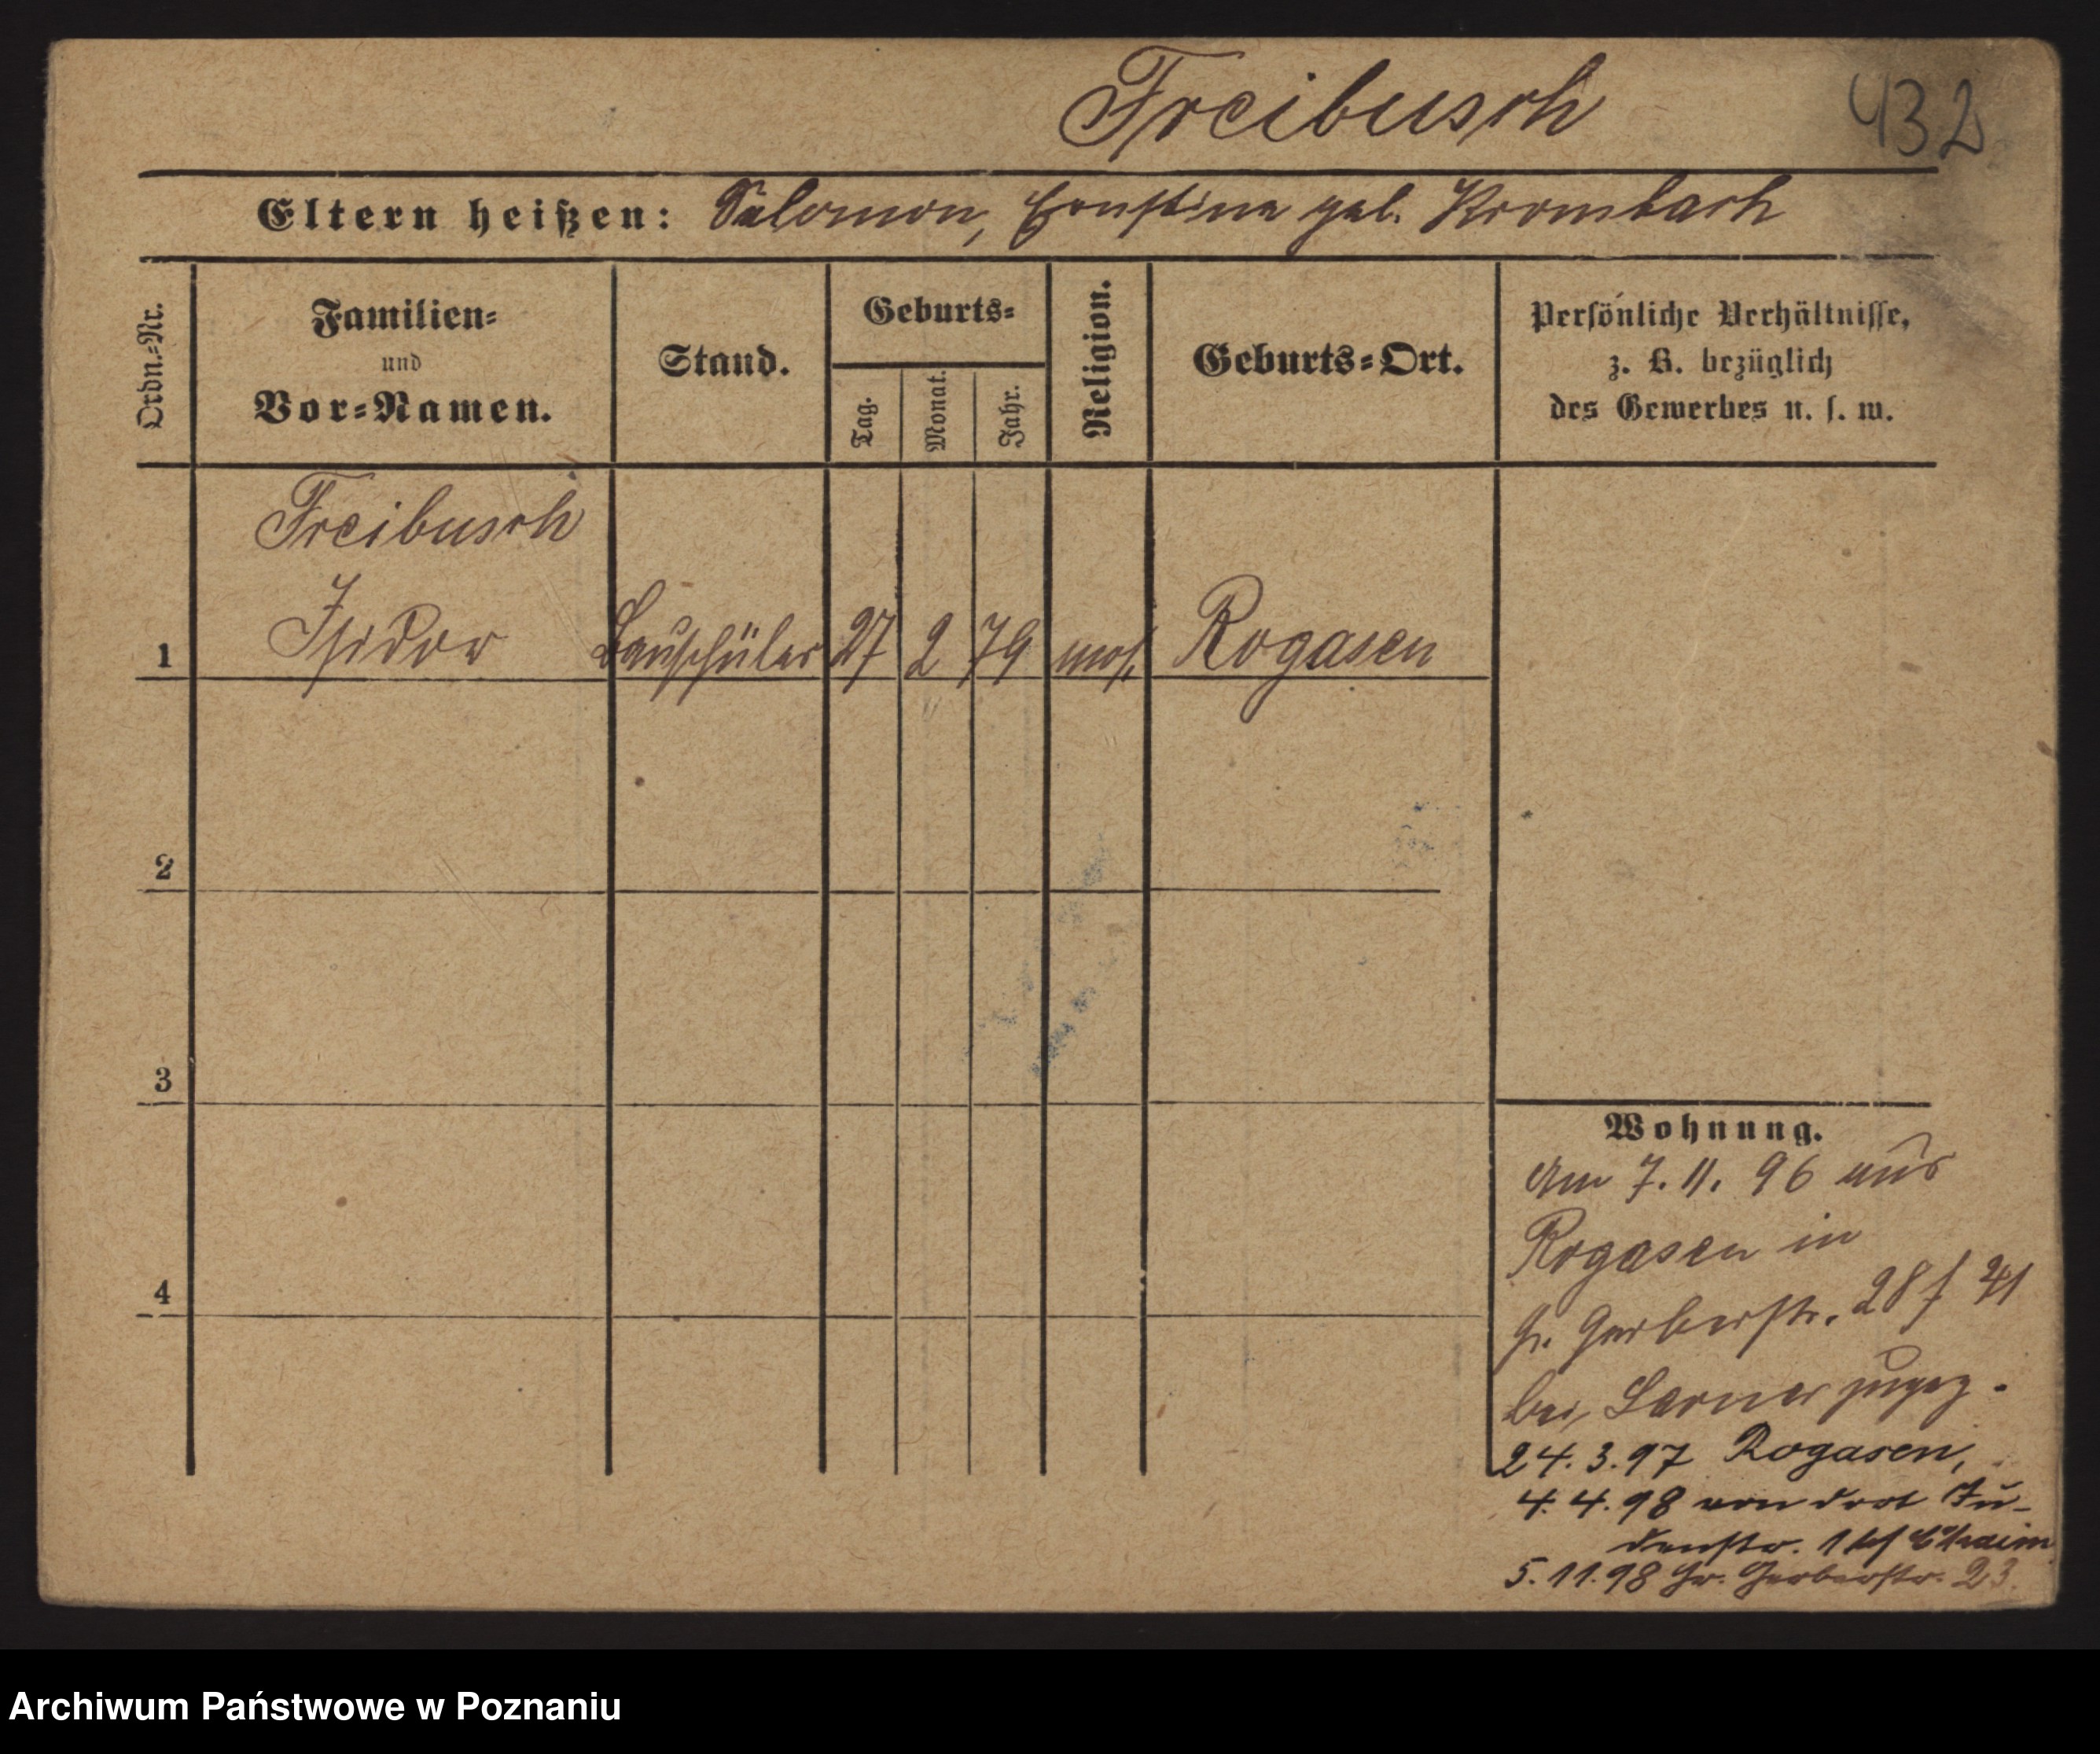 Freibusch
432
Eltern heißen: Salomon, Ernstine geb. Krombach
Ordn.=Nr.
Familien=
und
Vor=Namen.
Stand.
Geburts=
Tag.
Monat.
Jahr.
Religion.
Geburts=Ort.
Persönliche Verhältnisse,
z. B. bezüglich
des Gewerbes u. s. w.
Freibusch
1 Isidor Bauschüler 27 2 79 mos. Rogasen
2
3
4
Wohnung.
Am 7. 11. 96 aus
Rogasen in
Gr. Gerberstr. 28
bei Larner zugez.
24. 3. 97 Rogasen,
4. 4. 98 von dort Ju-
denstr. 1 Chaim
5. 11. 98 Gr. Gerberstr. 23.
Archiwum Państwowe w Poznaniu